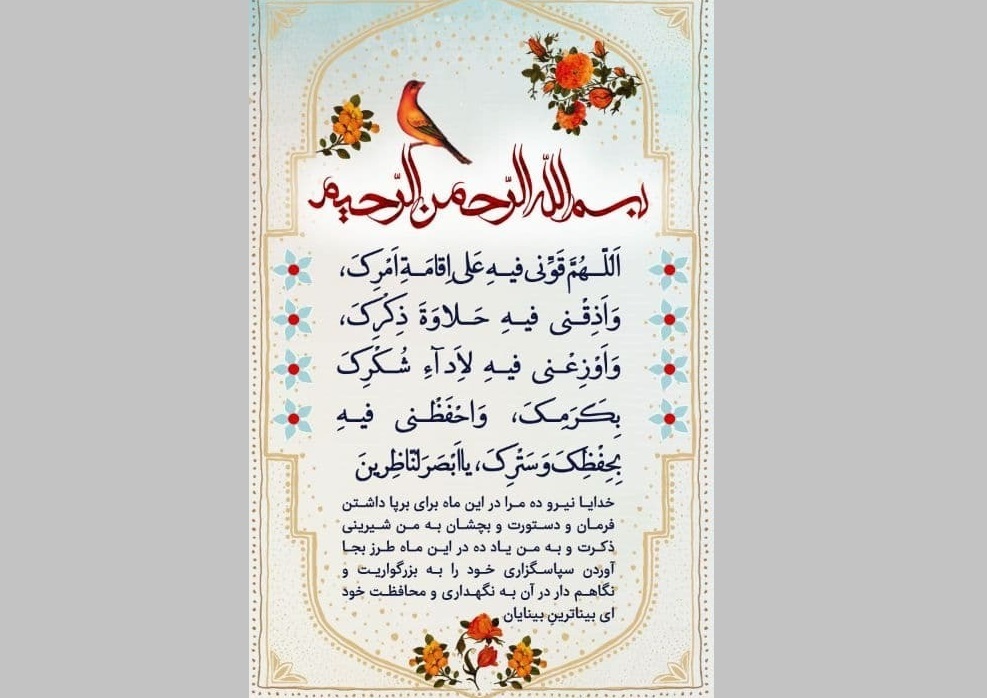 بسم الله الرّحمن الرّحیم
اَللّـهُمَّ قَوِّنی فیـهِ عَلی اِقامَـةِ اَمْرِکَ،
وَاَذِقْـنی فیـهِ حَـلاوَةَ ذِکْرِکَ،
وَاَوْزِعْـنی فیـهِ لِاَدآءِ شُـکْرِکَ
بِکَـرَمِـکَ، وَاحْفَظْـنی فیـهِ
بِحِفْظِکَ وَسَتْرِکَ، یا اَبْصَرَ النّاظِرینَ
خدایا نیرو ده مرا در این ماه برای برپا داشتن
فرمان و دستورت و بچشان به من شیرینی
ذکرت و به من یاد ده در این ماه طرز بجا
آوردن سپاسگزاری خود را به بزرگواریت و
نگاهم دار در آن به نگهداری و محافظت خود
ای بیناترینِ بینایان